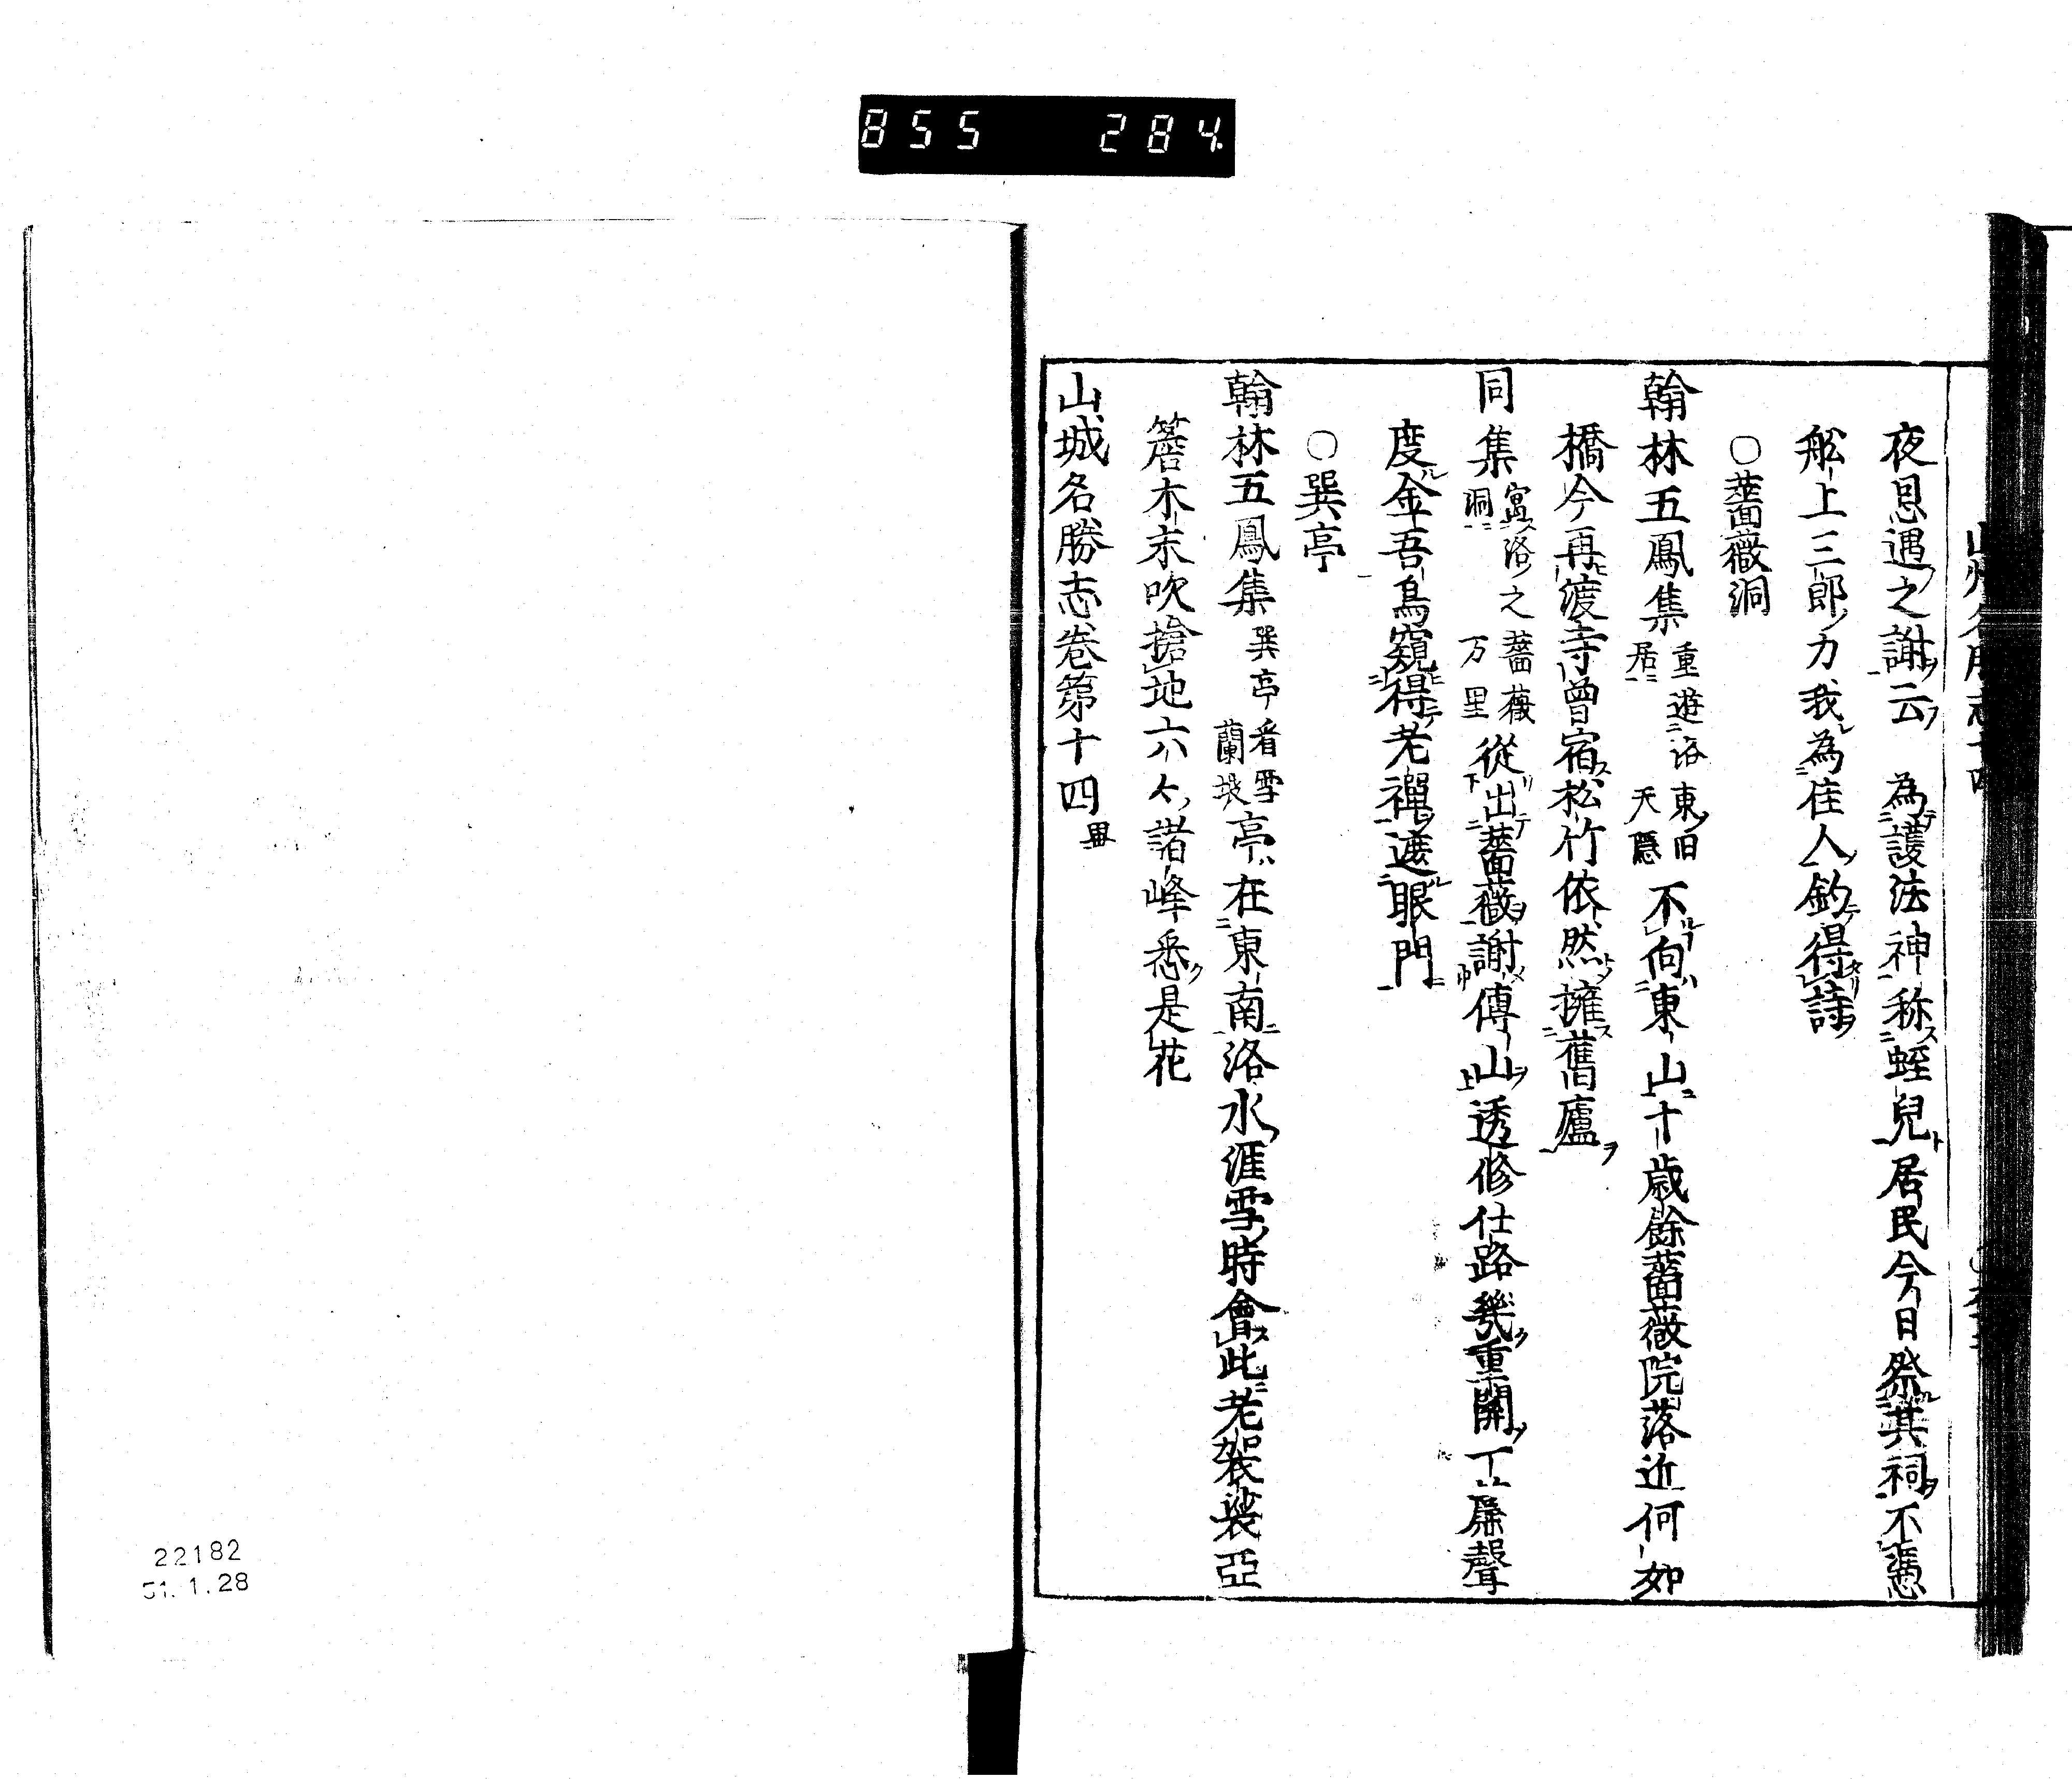 855 284
夜恩遇之謝云 為護法神称蛭兒居民今日祭其祠不悪
舩上三郎力我為佳人釣得詩
○薔薇洞
翰林五鳳集 重遊洛東旧居 天隠 不向東山十歳餘薔薇院落近何如
橋今再渡寺曽宿松竹依然擁舊廬
同集 寓洛之薔薇洞 万里 従出薔薇謝傅山透修仕路幾重関丁簾聲
度金吾鳥窺得老禪遮眼門
○巽亭
翰林五鳳集 巽亭看雪 蘭坡 亭在東南洛水涯雪時會此老袈裟亞
簷木末吹搶地六六諸峰悉是花
山城名勝志巻第十四 畢
22182
51.1.28